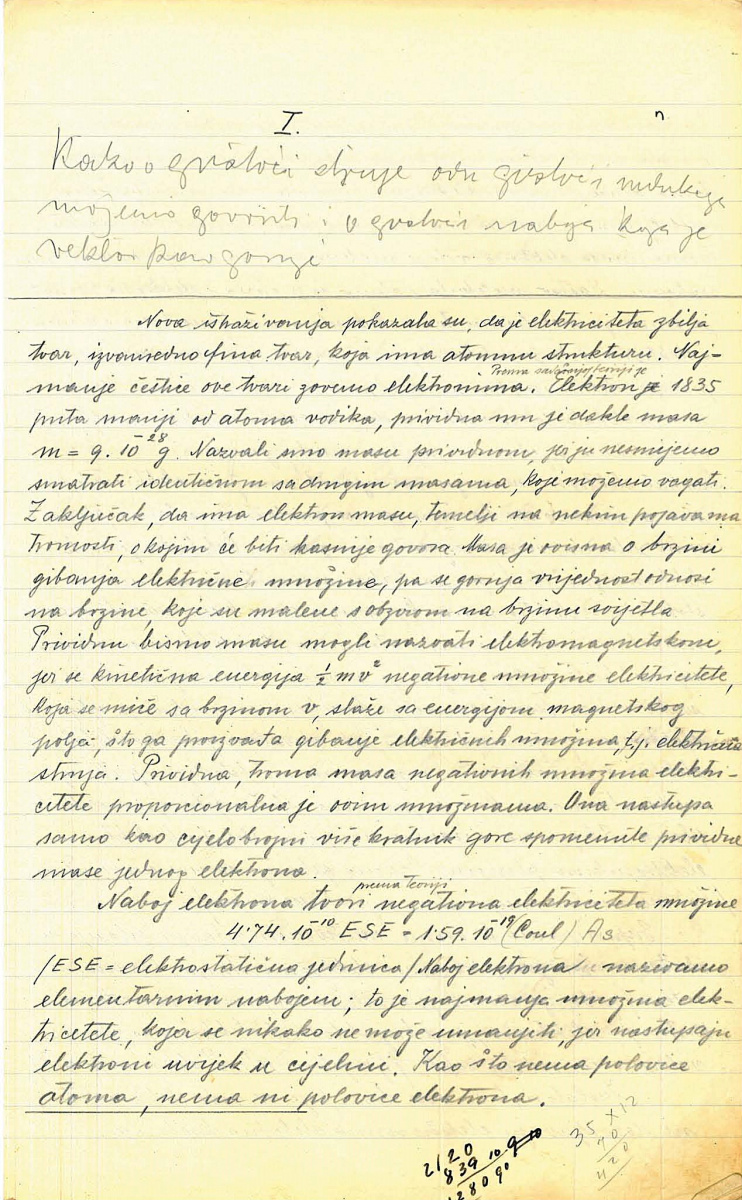 I.
Kako o gustoći struje odn gustoći
možemo govoriti i o gustoći naboja koja je
vektor kao gornji
Nova istraživanja pokazala su, da je elektriciteta zbilja
tvar, izvanredno fina tvar, koja ima atomnu strukturu. Naj-
manje čestice ove tvari zovemo elektronima. Prema sadašnjoj teoriji je Elektron je 1835
puta manji od atoma vodika, prividna mu je dakle masa
m = 9.10⁻²⁸ g. Nazvali smo masu prividnom, jer ju nesmijemo
smatrati identičnom sa drugim masama, koje možemo vagati.
Zaključak, da ima elektron masu, temelji na nekim pojavama
tromosti, o kojim će biti kasnije govora. Masa je ovisna o brzini
gibanja električne množine, pa se gornja vrijednost odnosi
na brzine, koje su malene s obzirom na brzinu svijetla
Prividnu bismo masu mogli nazvati elektromagnetskom,
jer se kinetična energija ½ mv² negativne množine elektricitete,
koja se miče sa brzinom v, slaže sa energijom magnetskog
polja, što ga proizvađa gibanje električnih množina, t.j. električna
struja. Prividna, troma masa negativnih množina elektri-
citete proporcionalna je ovim množinama. Ona nastupa
samo kao cijelobrojni višekratnik gore spomenute prividne
mase jednog elektrona.
Naboj elektrona tvori prema teoriji negativna elektriciteta množine
4·74.10⁻¹⁰ ESE = 1·59.10⁻¹⁹ (Coul) As
/ESE = elektrostatična jedinica/ Naboj elektrona nazivamo
elementarnim nabojem; to je najmanja množina elek-
tricitete, koja se nikako ne može umanjiti, jer nastupaju
elektroni uvijek u cijelini. Kao što nema polovice
atoma, nema ni polovice elektrona.
35 × 12
70
420
2120
839